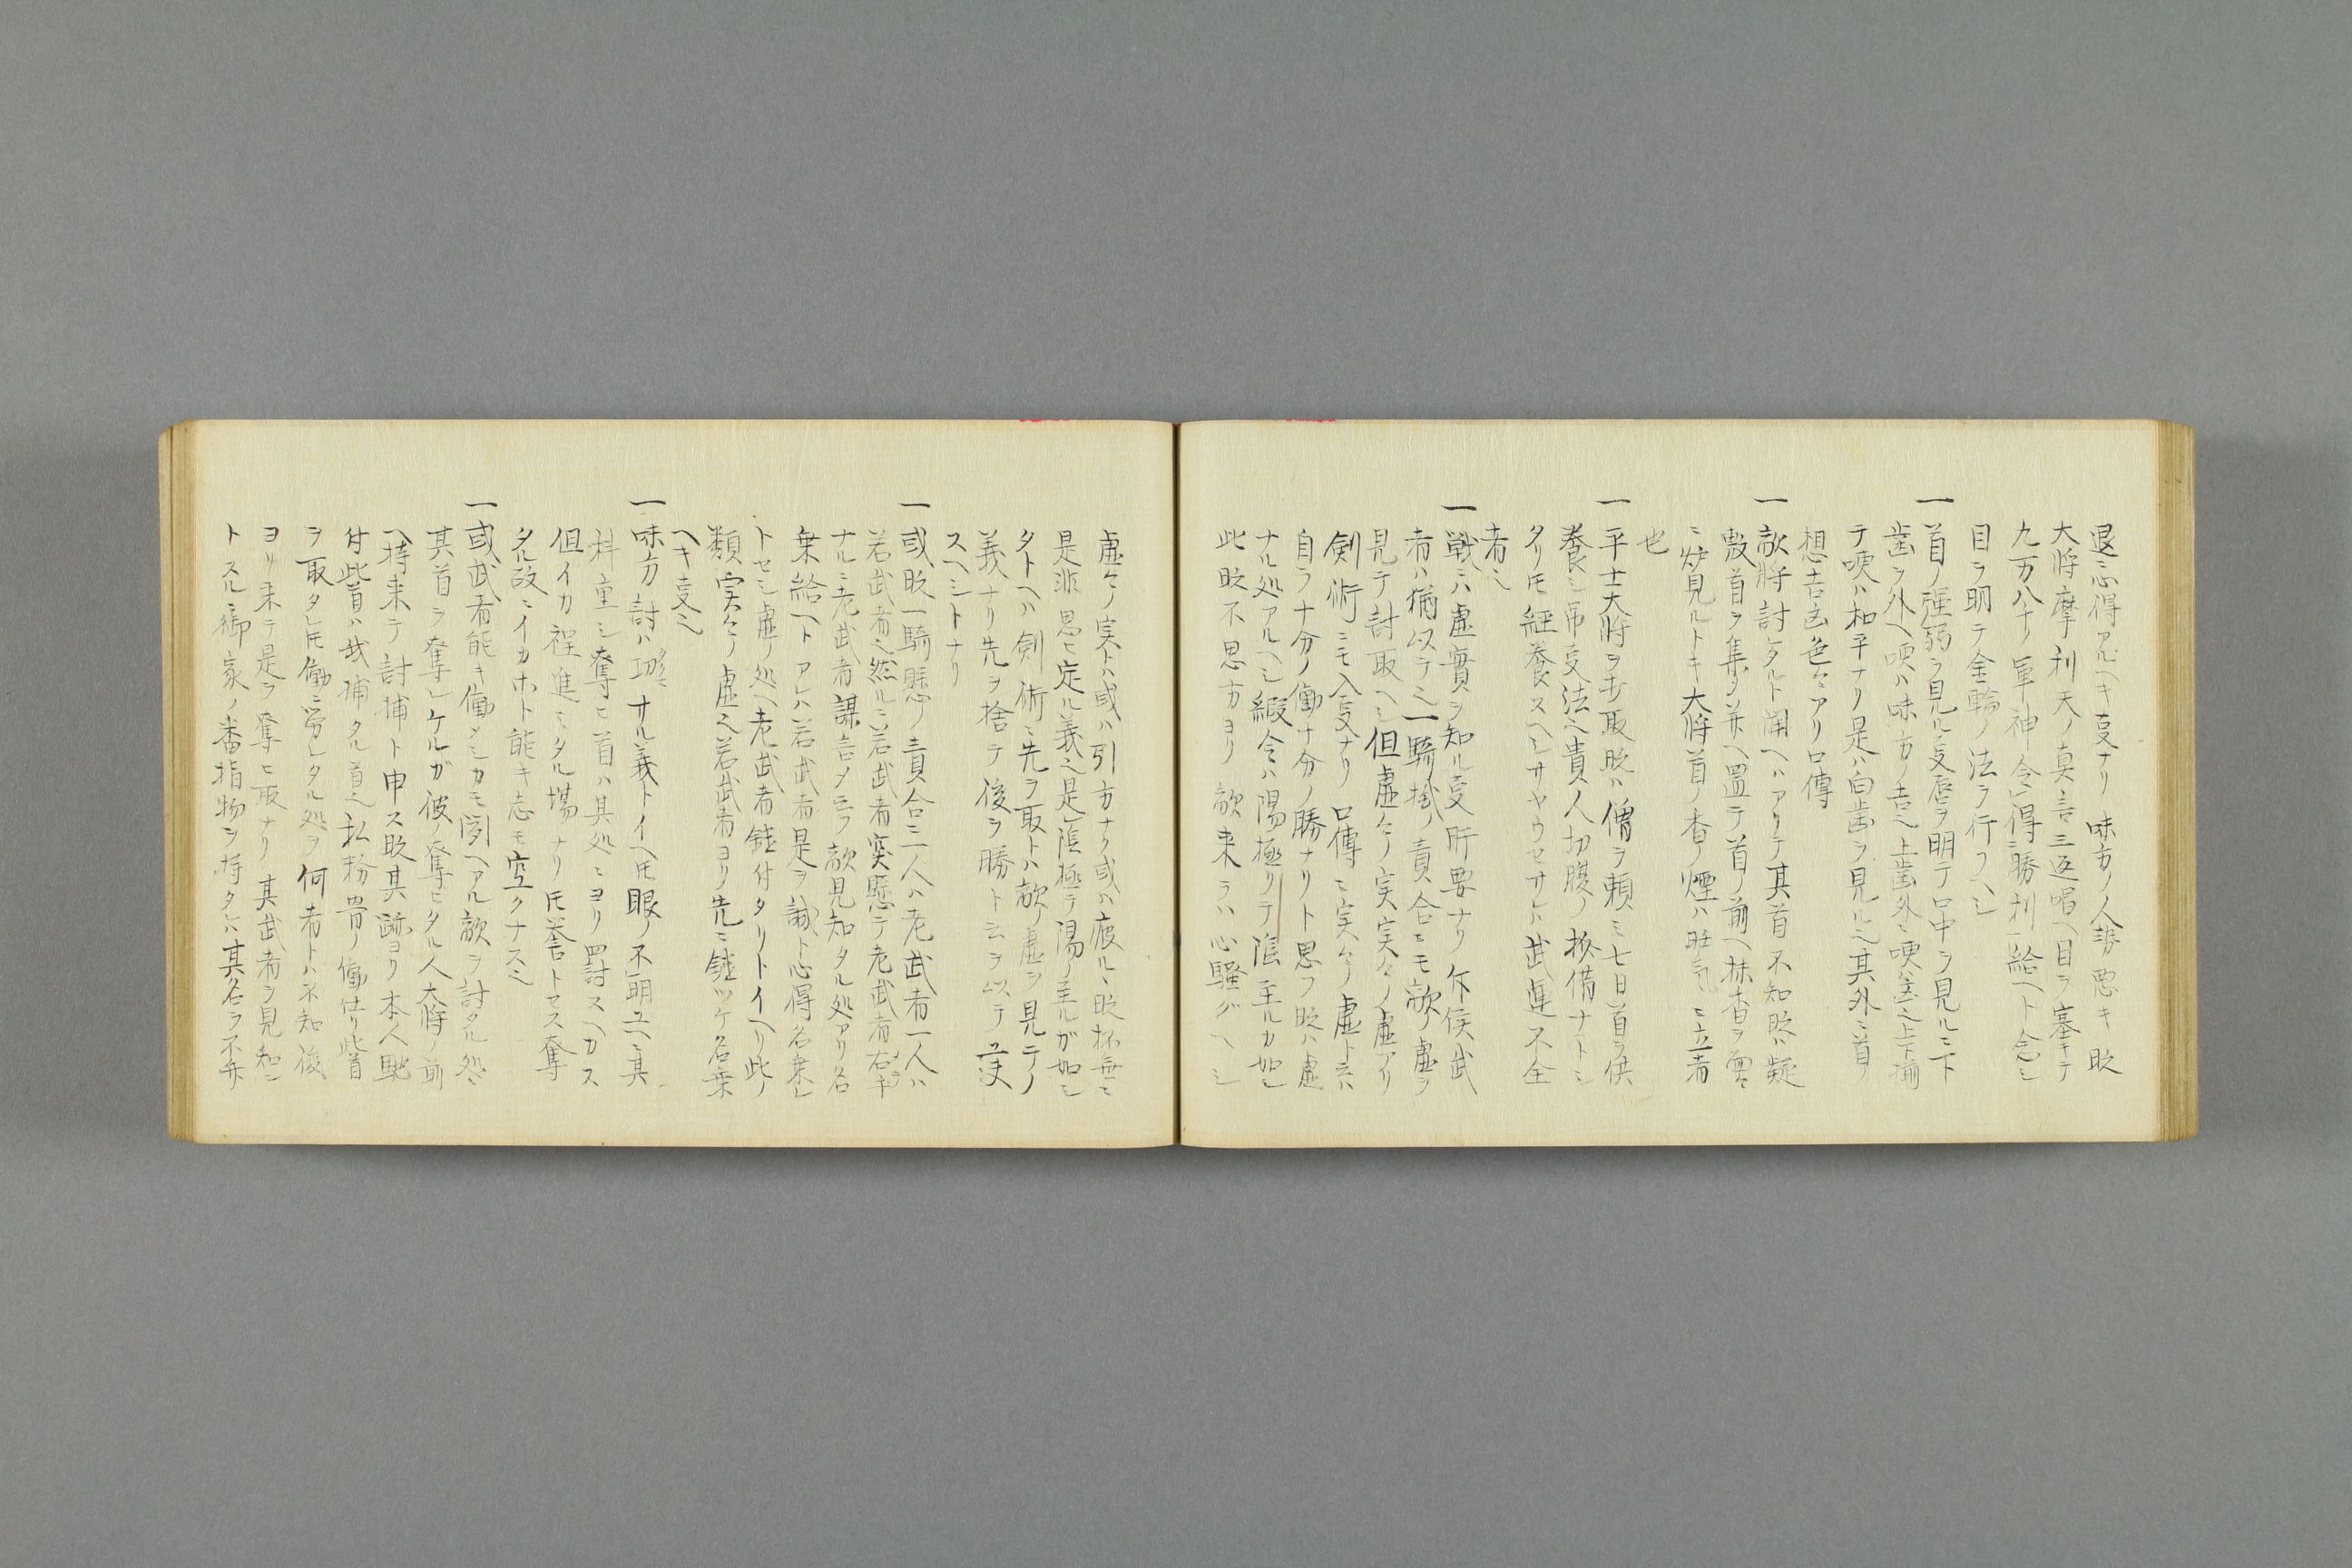 退ニ心得アルヘキ叓ナリ味方ノ人勢悪キ時
大将摩利天ノ真言三返唱ヘ目ヲ塞キテ
九万八千ノ軍神令得勝利給ヘト念シ
目ヲ明テ金輪ノ法ヲ行フヘシ
一首ノ強弱ヲ見ル叓唇ヲ明テ口中ヲ見ルニ下
歯ヲ外ヘ咬ハ味方ノ吉之上歯外ニ咬ハ凶之上下揃
テ咬ハ和平ナリ是ハ白歯ヲ見ル之其外ニ首ノ
想吉凶色々アリ口傳
一敵将討ケタルト聞ヘハアリテ其首不知時ハ疑
敷首ヲ集メ並ヘ置テ首ノ前ヘ抹香ヲ置
ニ炉見ルトキ大将首ノ香ノ煙ハ旺気ニ立者
也
一平士大将ヲ打取時ハ僧ヲ頼ミ七日首ヲ供
養シ吊叓法之貴人切腹ノ挍借ナトシ
タリ𪜈経養スヘシサヤウセサレハ武運不全
者之
一戦ニハ虚實ヲ知ル叓肝要ナリ斥侯武
者ハ猶以テ之一騎掛ノ責合ニモ敵ノ虚ヲ
見テ討取ヘシ但虚々ノ実実々ノ虚アリ
剣術ニモ入叓ナリ口傳ニ実々ノ虚ト云ハ
自ラナ分ノ働ナ分ノ勝ナリト思フ時ハ虚
ナル処アルヘシ縦令ハ陽極リテ陰至ルカ如シ
此時不思方ヨリ敵来ラハ心騒グヘシ
虚々ノ実トハ或ハ引方ナク或ハ疲ルヽ時抔無ニ
是非思ヒ定ル義之是陰極テ陽ノ至ルガ如シ
タトヘハ剣術ニ先ヲ取トハ敵ノ虚ヲ見テノ
義ナリ先ヲ捨テ後ヲ勝トシ云ヲ以テ叓
スヘシトナリ
一或時一騎懸ノ責合ニ一人ハ老武者一人ハ
若武者之然ルニ若武者突懸テ老武者右手
ナルニ老武者謀言タ云フ敵見知タル処アリ名
乗給ヘトアレハ若武者是ヲ誠ト心得名乗レ
トセシ虚ノ処ヘ老武者鎗付タリトイヘリ此ノ
類実々ノ虚之若武者ヨリ先ニ鎗ツケ名乗
ヘキ叓之
一味方討ハ切々ニナル義トイヘ𪜈眼ノ不明ユヘニ其
科重シ奪ヒ首ハ其処ニヨリ罸スヘカス
但イカ程進ミタル場ナリ𪜈誉トセス奪
タル故ニイカホト能キ志モ空クナス之
一或武者能キ働タシカモ聞ヘアル敵ヲ討タル処ニ
其首ヲ奪レケルガ彼ノ奪ヒタル人大将ノ前
ヘ持来テ討捕ト申ス時其跡ヨリ本人馳
付此首ハ我捕タル首之私粉骨ノ働仕リ此首
ヲ取タレ𪜈働ニ労レタル処ヲ何者トハ不知後
ヨリ来テ是ヲ奪ヒ取ナリ其武者ヲ見知ン
トスルニ御家ノ番指物ヲ持タレハ其名ヲ不弁